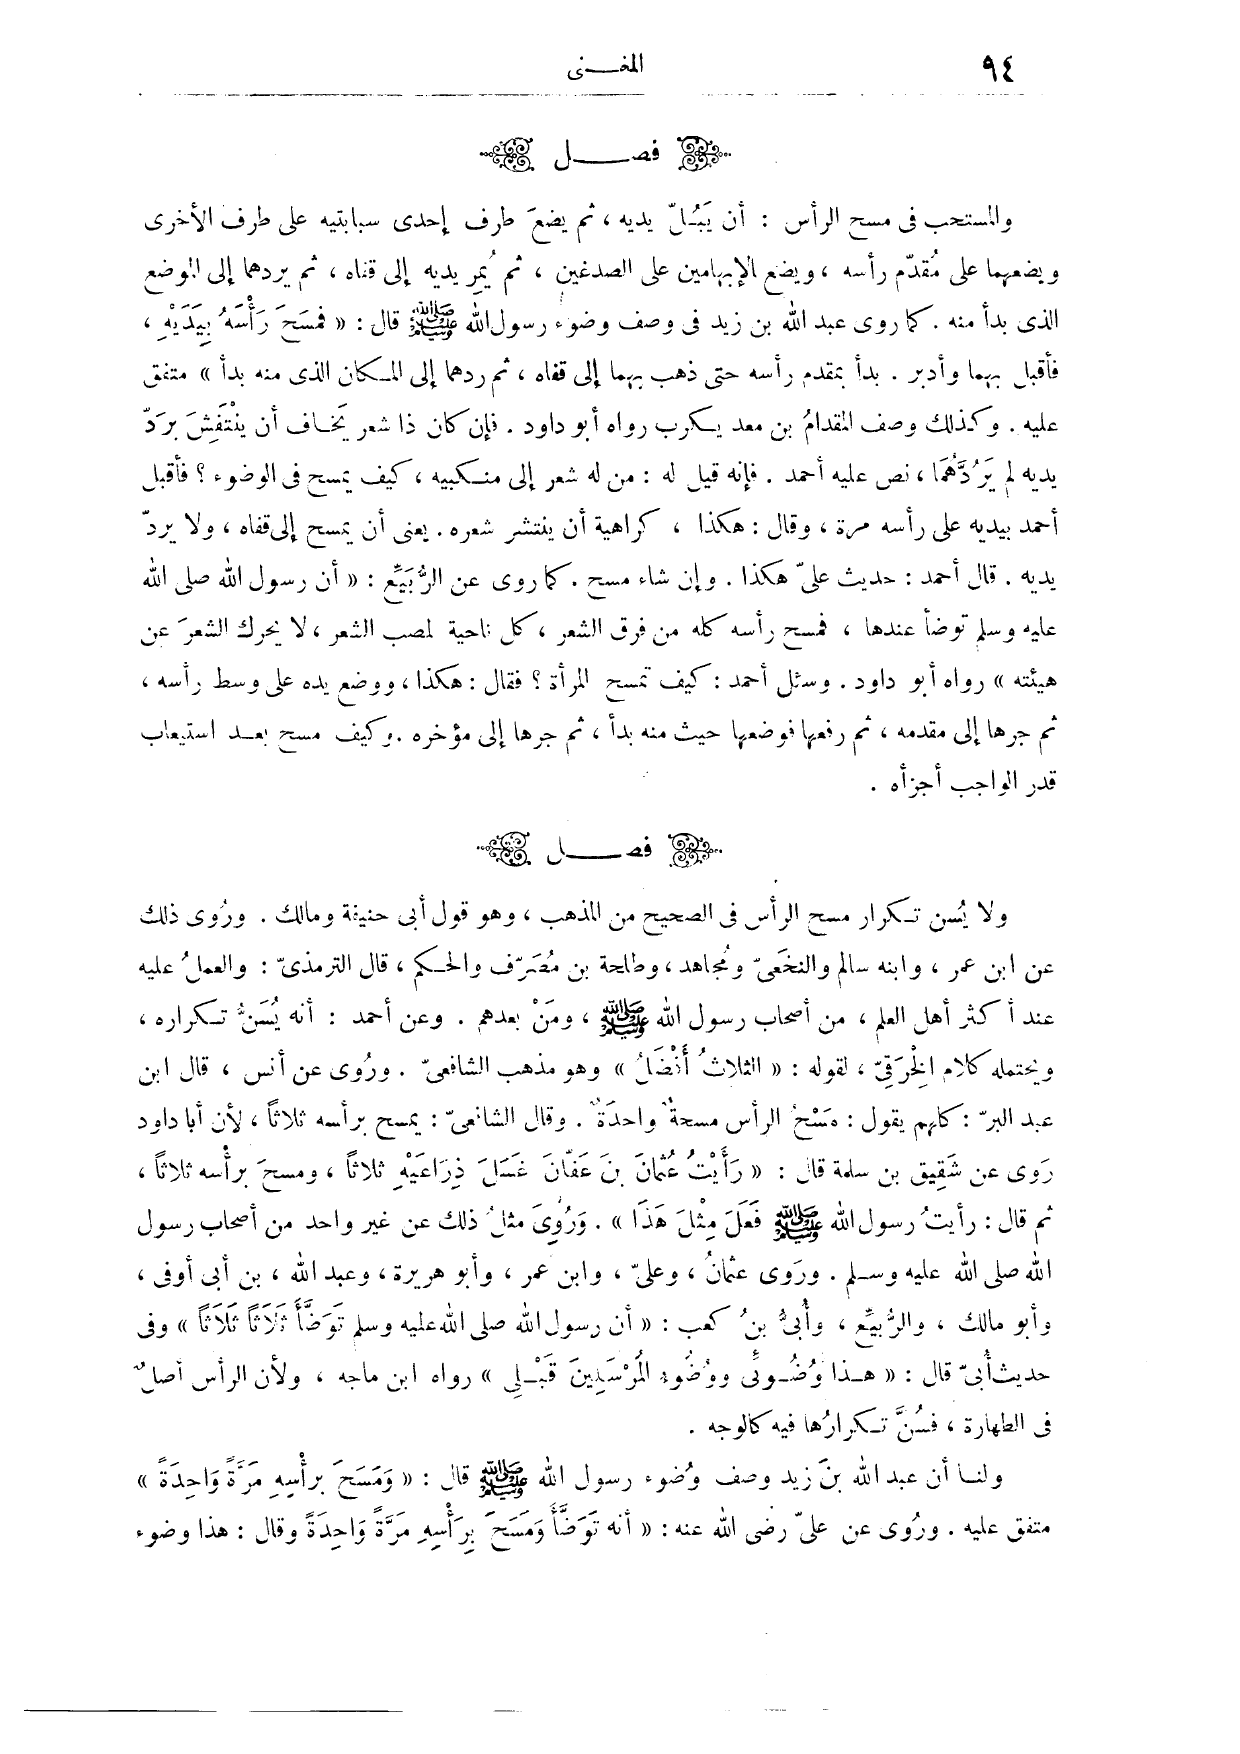 ٩٤
المغـــنى
فصـــــــل
والمستحب فى مسح الرأس : أن يَبُلّ يديه ، ثم يضعَ طرف إحدى سبابتيه على طرف الأخرى
ويضعهما على مُقدّم رأسه ، ويضع الإبهامين على الصدغين ، ثم يُمِر يديه إلى قفاه ، ثم يردهما إلى الموضع
الذى بدأ منه . كما روى عبد الله بن زيد فى وصف وضوء رسول الله ﷺ قال : « فمَسَحَ رَأْسَهُ بِيَدَيْهِ ،
فأقبل بهما وأدبر . بدأ بمقدم رأسه حتى ذهب بهما إلى قفاه ، ثم ردهما إلى المـكان الذى منه بدأ » متفق
عليه . وكذلك وصف المقدامُ بن معد يـكرب رواه أبو داود . فإن كان ذا شعر يَخـاف أن ينْتَفِشَ بردّ
يديه لم يَرُدَّهُمَا ، نص عليه أحمد . فإنه قيل له : من له شعر إلى منـكبيه ، كيف يمسح فى الوضوء ؟ فأقبل
أحمد بيديه على رأسه مرة ، وقال : هـكذا ، كراهية أن ينتشر شعره . يعنى أن يمسح إلى قفاه ، ولا يردّ
يديه . قال أحمد : حديث علىّ هكذا . وإن شاء مسح . كما روى عن الرُّبَيِّع : « أن رسول الله صلى الله
عليه وسلم توضأ عندها ، فمسح رأسه كله من فرق الشعر ، كل ناحية لمصب الشعر ، لا يحرك الشعرَ عن
هيئته » رواه أبو داود . وسئل أحمد : كيف تمسح المرأة ؟ فقال : هكذا ، ووضع يده على وسط رأسه ،
ثم جرها إلى مقدمه ، ثم رفعها فوضعها حيث منه بدأ ، ثم جرها إلى مؤخره . وكيف مسح بعـد استيعاب
قدر الواجب أجزأه .
فصـــــــل
ولا يُسن تـكرار مسح الرأس فى الصحيح من المذهب ، وهو قول أبى حنيفة ومالك . ورُوى ذلك
عن ابن عمر ، وابنه سالم والنخَعىّ ومُجاهد ، وطلحة بن مُصَرّف والحـكم ، قال الترمذىّ : والعملُ عليه
عند أكثر أهل العلم ، من أصحاب رسول الله ﷺ ، ومَنْ بعدهم . وعن أحمد : أنه يُسَنُّ تـكراره ،
ويحتمله كلام الخِرَقِىّ ، لقوله : « الثلاثُ أَفْضَلُ » وهو مذهب الشافعىّ . ورُوى عن أنس ، قال ابن
عبد البرّ : كلهم يقول : مَسْحُ الرأس مسحةً واحدَةً . وقال الشافعىّ : يمسح برأسه ثلاثاً ، لأن أبا داود
رَوى عن شَقِيق بن سلمة قال : « رَأَيْتُ عُثْمَانَ بنَ عَفّانَ غَسَلَ ذِرَاعَيْهِ ثلاثاً ، ومسحَ برأسه ثلاثاً ،
ثم قال : رأيتُ رسول الله ﷺ فَعَلَ مِثْلَ هَذَا » . وَرُوِىَ مثلُ ذلك عن غير واحد من أصحاب رسول
الله صلى الله عليه وسـلم . ورَوى عثمانُ ، وعلىّ ، وابن عمر ، وأبو هريرة ، وعبد الله ، بن أبى أوفى ،
وأبو مالك ، والرُّبيِّع ، وأُبىُّ بنُ كعب : « أن رسول الله صلى الله عليه وسلم تَوَضَّأَ ثَلَاثاً ثَلَاثاً » وفى
حديث أُبىّ قال : « هـذا وُضُـوئى ووُضُوء المُرْسَلِينَ قَبْـلِى » رواه ابن ماجه ، ولأن الرأس أصلٌ
فى الطهارة ، فسُنَّ تـكرارُها فيه كالوجه .
ولنـا أن عبد الله بنَ زيد وصف وُضوء رسول الله ﷺ قال : « وَمَسَحَ برأْسِهِ مَرَّةً وَاحِدَةً »
متفق عليه . ورُوى عن علىّ رضى الله عنه : « أنه تَوَضَّأَ وَمَسَحَ بِرَأْسِهِ مَرَّةً وَاحِدَةً وقال : هذا وضوء